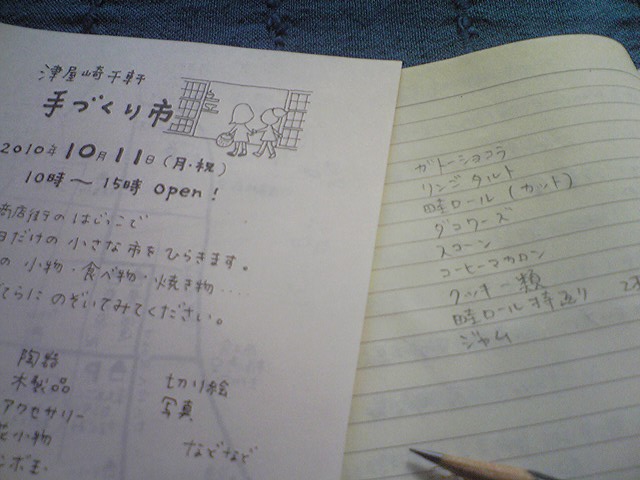 津屋崎千軒
手づくり市
2010年10月11日(月・祝)
10時〜15時 open!
商店街のはじっこで
日だけの小さな市をひらきます。
の小物・食べ物・焼き物····
てらにのぞいてみてください。
陶器
木製品
アクセサリー
花小物
ンボ玉
切り絵
写真
などなど
ガトーショコラ
リンゴタルト
畦ロール(カット)
ダコワーズ
スコーン
コーヒーマカロン
クッキー類
畦ロール持返り
ジャム